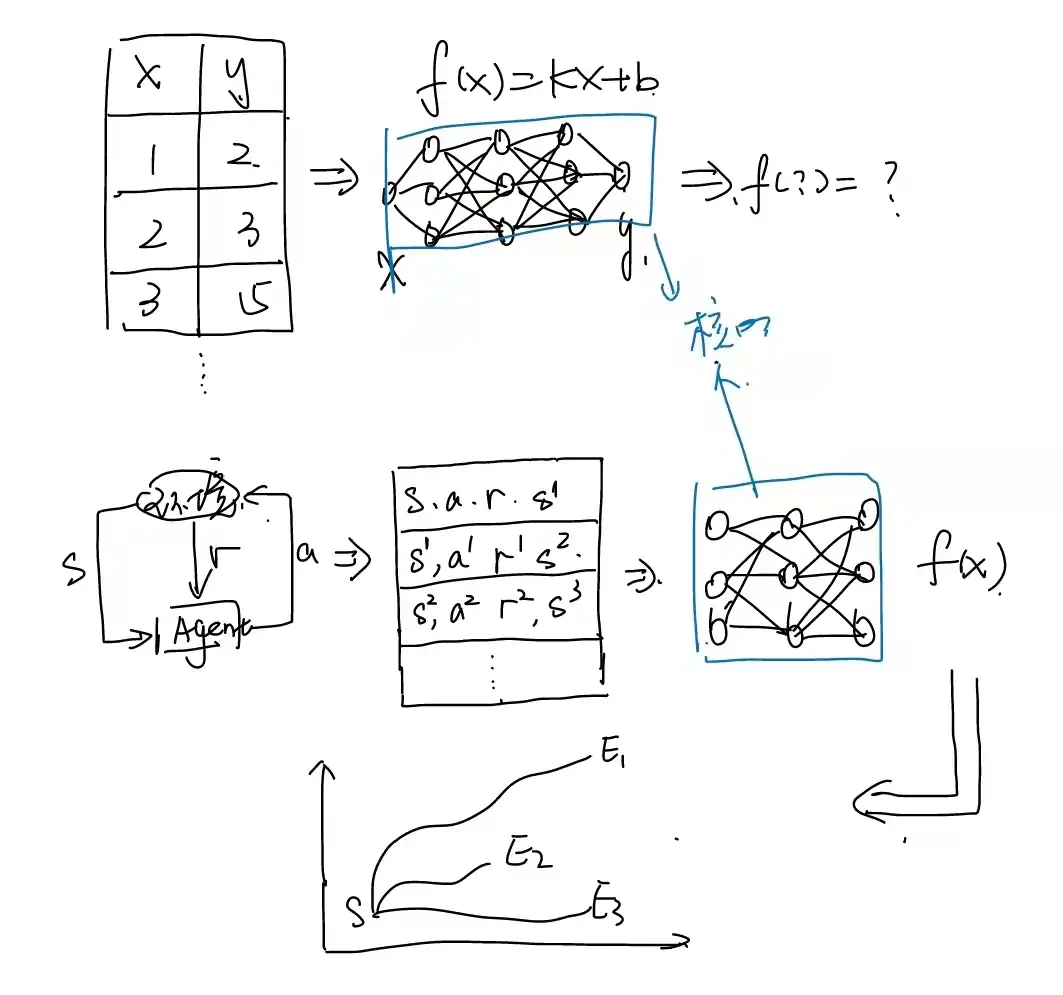 x y
1 2.
2 3
3 5
f(x)=kx+b
x
y.
⇒.f(?)= ?
核心
S
r
a
Agent
s.a.r.s¹
s¹,a¹ r¹ s².
s²,a² r²,s³
f(x)
E₁
E₂
E₃
S